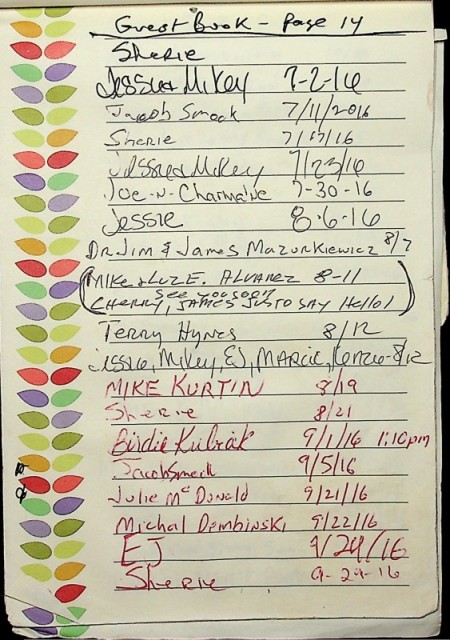 Guest Book - Page 14
Sherie
Jessie & Mikey 7-2-16
Jacob Smock 7/11/2016
Sherie 7/17/16
Jessie & Mikey 7/23/16
Joe-N-Charmaine 7-30-16
Jessie 8-6-16
Dr. Jim & James Mazurkiewicz 8/7
MIKE & LUZ E. ALVAREZ 8-11
See you soon
CHERRY, JAMES JUST TO SAY Hello!
Terry Hynes 8/12
Jessie, Mikey, EJ, MARCIE, Kenzie-8/12
MIKE KURTIN 8/19
Sherie 8/21
Birdie Kubrak 9/1/16 1:10pm
Jacob Smock 9/5/16
Julie McDonald 9/21/16
Michal Dembinski 9/22/16
EJ 9/24/16
Sherie 9-29-16